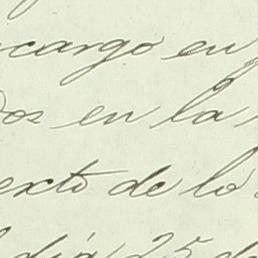 encargo en
dos en la
texto de lo
el día 25 de